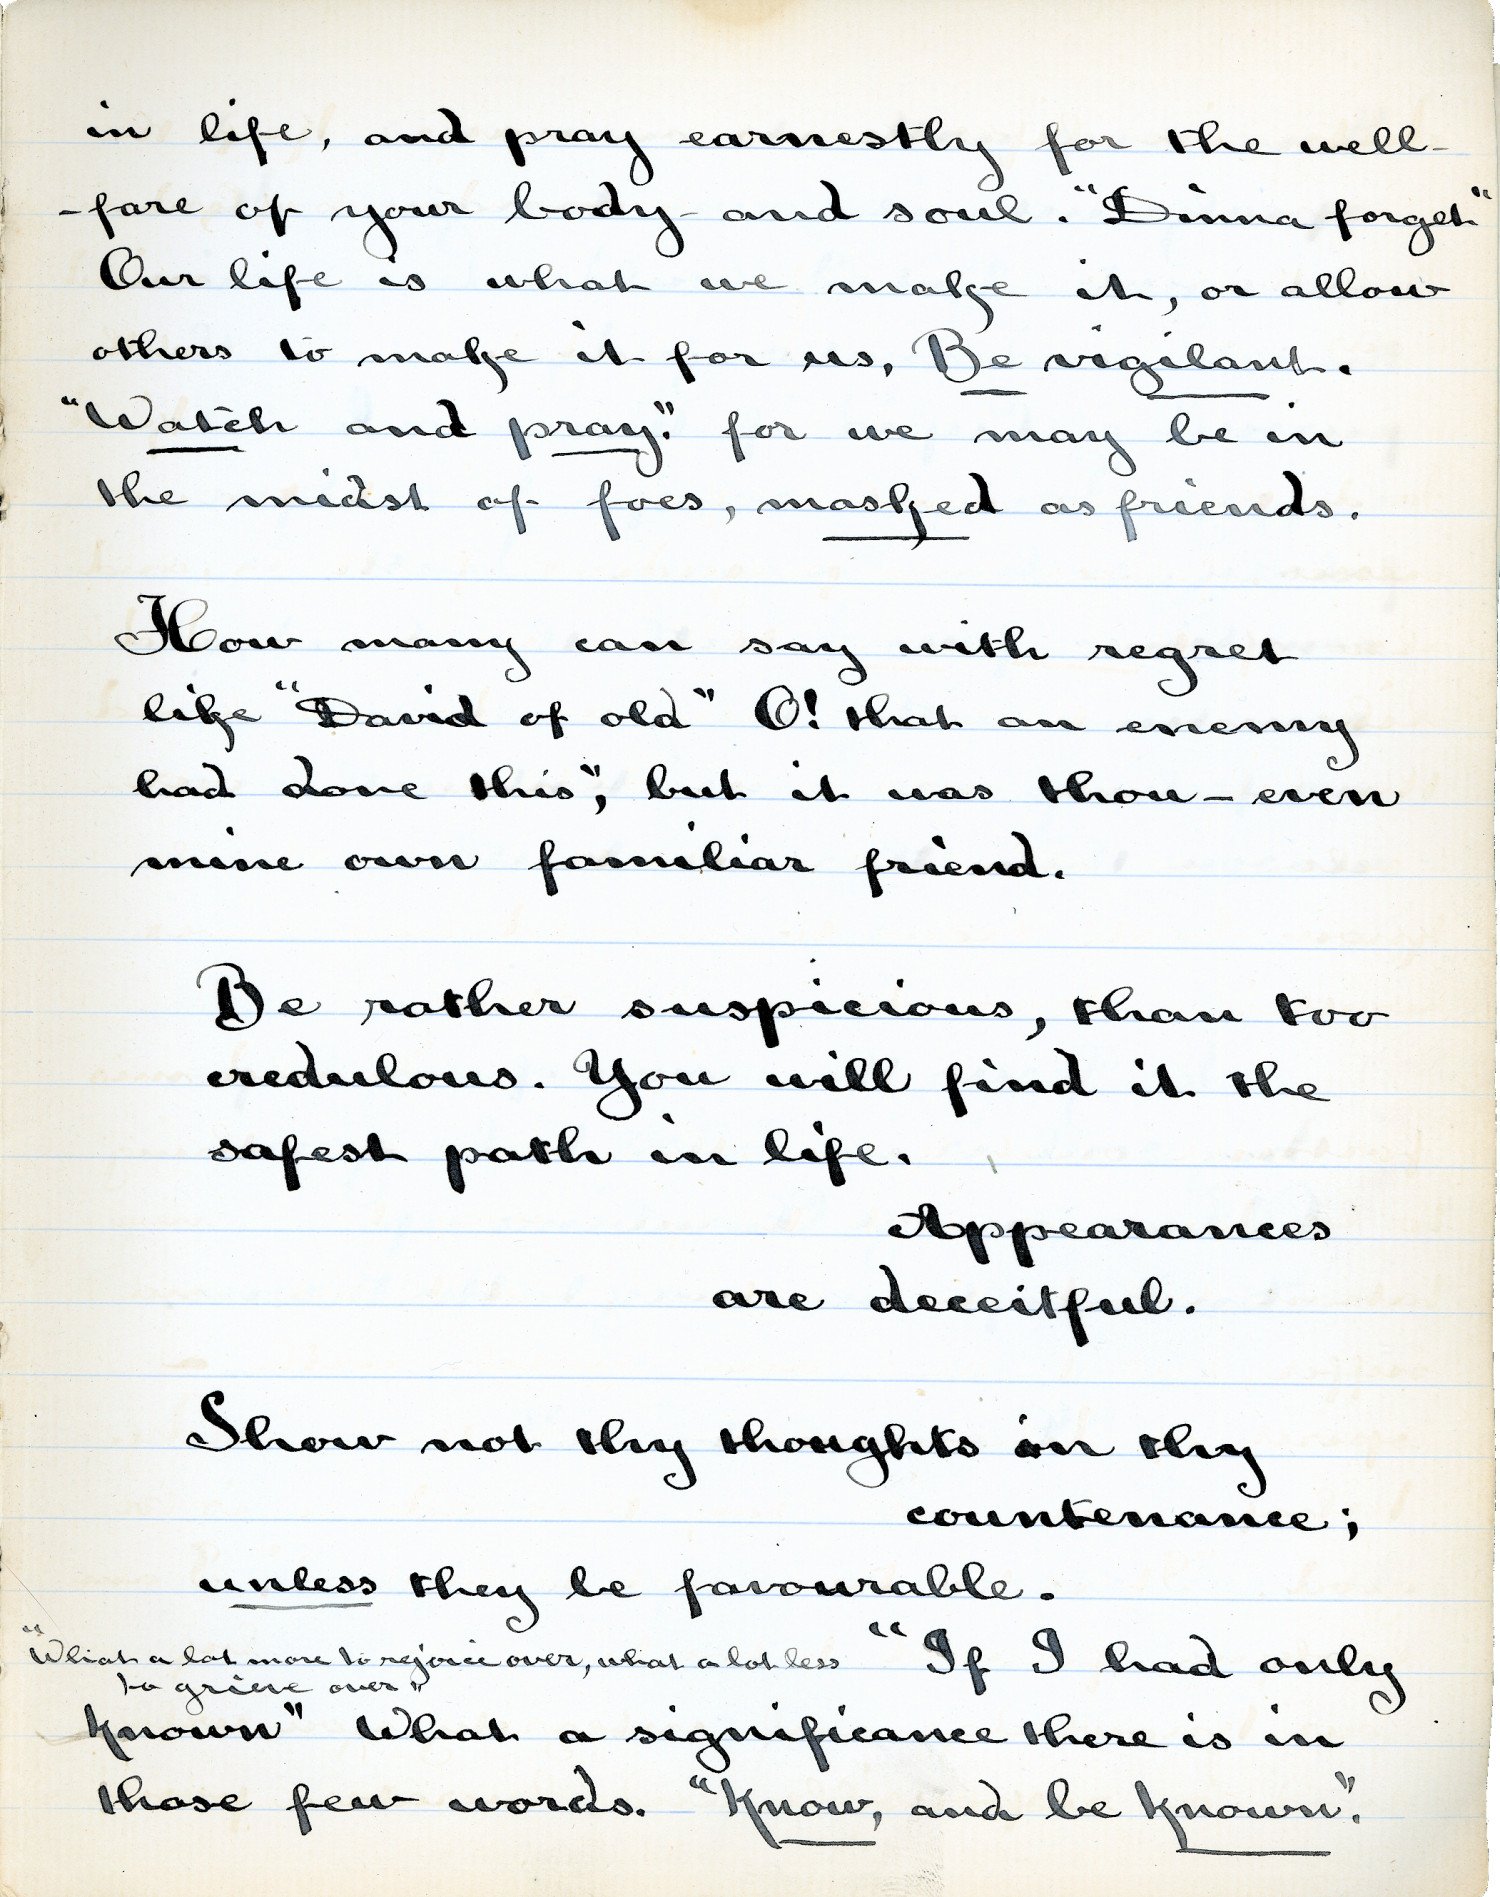 in life, and pray earnestly for the well-
-fare of your body and soul. "Dinna forget"
Our life is what we make it, or allow
others to make it for us, Be vigilant.
"Watch and pray." for we may be in
the midst of foes, masked as friends.
How many can say with regret
like "David of old" O! that an enemy
had done this", but it was thou - even
mine own familiar friend.
Be rather suspicious, than too
credulous. You will find it the
safest path in life.
Appearances
are deceitful.
Show not thy thoughts in thy
countenance;
unless they be favourable.
"What a lot more to rejoice over, what a lot less
to grieve over"
"If I had only
known" What a significance there is in
those few words. "Know, and be known".